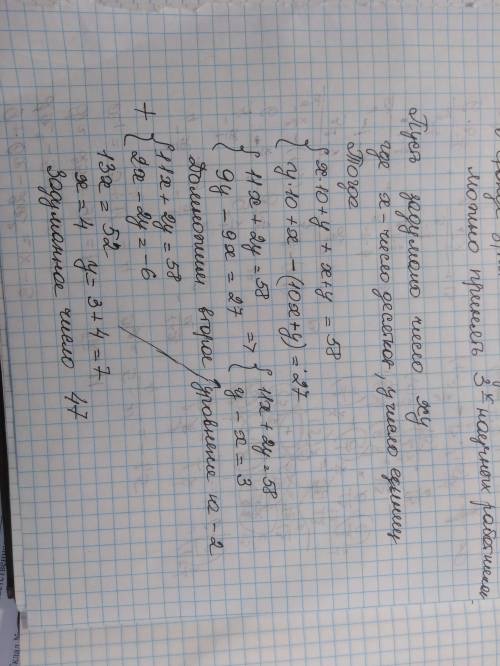 можно принять 3х научных работников.
Пусть задумано число xy
где x - число десятков, y число единиц
Тогда
{ x·10 + y + x + y = 58
{ y·10 + x - (10x + y) = 27
{ 11x + 2y = 58
{ 9y - 9x = 27 => { 11x + 2y = 58
{ y - x = 3
Домножим второе уравнение на -2
+ { 11x + 2y = 58
{ 2x - 2y = -6
13x = 52
x = 4 y = 3 + 4 = 7
Задуманное число 47